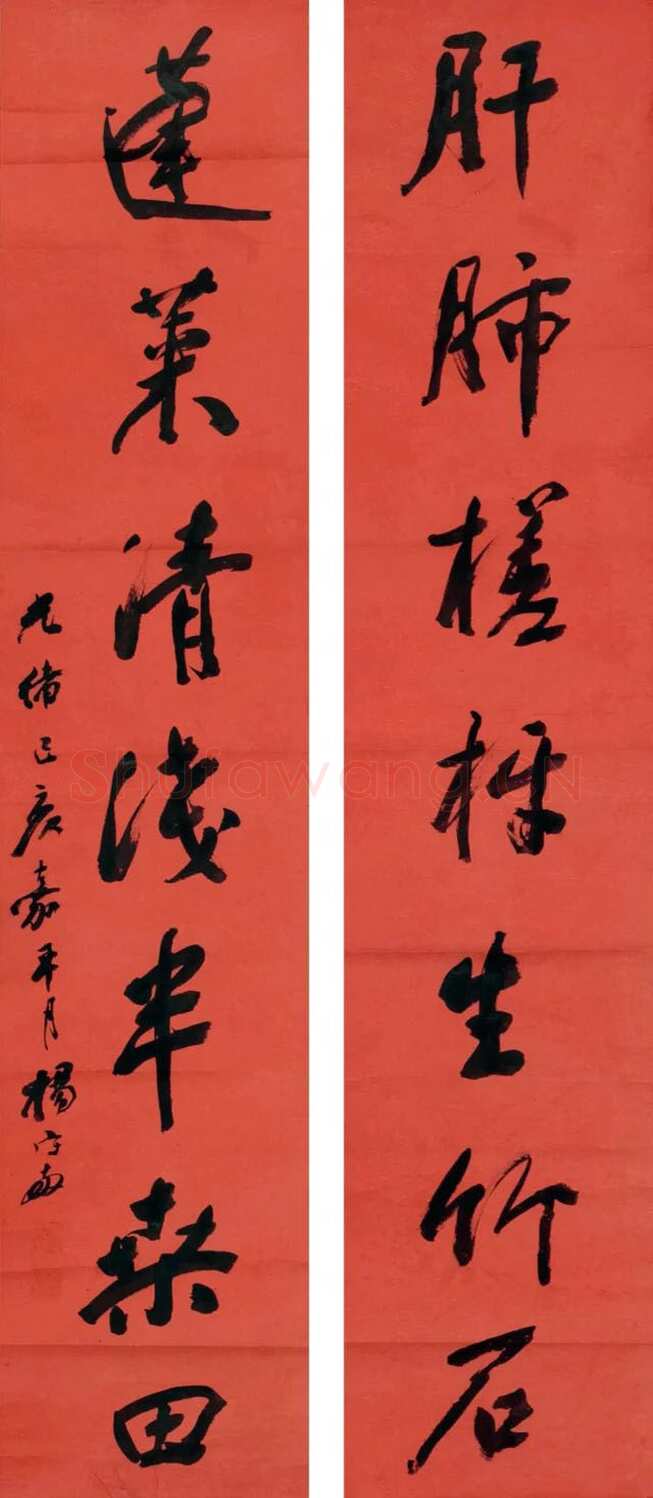 肝肺槎枒生竹石
蓬莱清浅半桑田
光绪己亥嘉平月杨守敬
Shufawang.CN